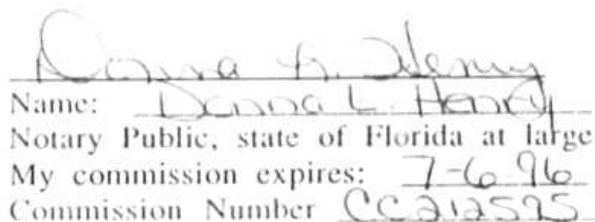 Donna L. Henry
Name: Donna L. Henry
Notary Public, state of Florida at large
My commission expires: 7-6-96
Commission Number CC212595